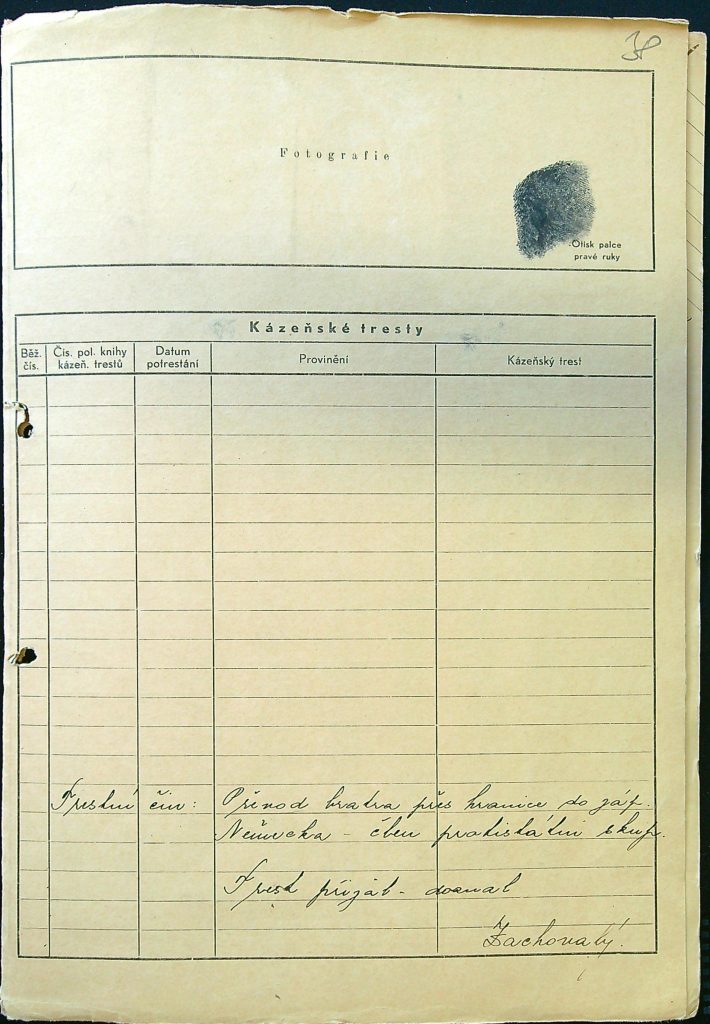 38
Fotografie
Otisk palce
pravé ruky
Kázeňské tresty
Běž. čís.
Čís. pol. knihy kázeň. trestů
Datum potrestání
Provinění
Kázeňský trest
Trestní čin: Převod bratra přes hranice do záp.
Německa - člen protistátní skup.
Trest přijal - doznal
Zachovalý.